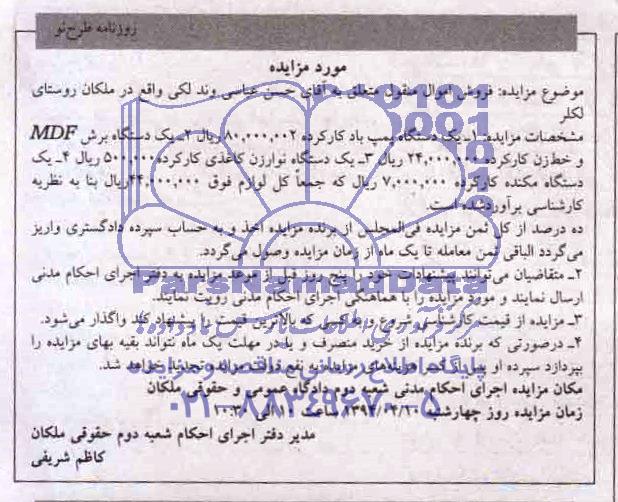 روزنامه طرح نو
مورد مزایده
موضوع مزایده: فروش اموال منقول متعلق به آقای حسن عباسی وند لکی واقع در ملکان روستای
لکلر
مشخصات مزایده: ۱ـ یک دستگاه پمپ باد کارکرده ۸۰,۰۰۰,۰۰۲ ریال ۲ـ یک دستگاه برش MDF
و خط‌زن کارکرده ۲۴,۰۰۰,۰۰۰ ریال ۳ـ یک دستگاه نوارزن کاغذی کارکرده ۵۰۰,۰۰۰ ریال ۴ـ یک
دستگاه مکنده کارکرده ۷,۰۰۰,۰۰۰ ریال که جمعاً کل لوازم فوق ۴۴,۰۰۰,۰۰۰ ریال بنا به نظریه
کارشناسی برآورد شده است.
ده درصد از کل ثمن مزایده فی‌المجلس از برنده مزایده اخذ و به حساب سپرده دادگستری واریز
می‌گردد الباقی ثمن معامله تا یک ماه از زمان مزایده وصول می‌گردد.
۲ـ متقاضیان می‌توانند پیشنهادات خود را پنج روز قبل از موعد مزایده به دفتر اجرای احکام مدنی
ارسال نمایند و مورد مزایده را با هماهنگی اجرای احکام مدنی رویت نمایند.
۳ـ مزایده از قیمت کارشناسی شروع و به کسی که بالاترین قیمت را پیشنهاد کند واگذار می‌شود.
۴ـ درصورتی که برنده مزایده از خرید منصرف و یا در مهلت یک ماه نتواند بقیه بهای مزایده را
بپردازد سپرده او پس از کسر هزینه‌های مزایده به نفع دولت ضبط و مزایده تجدید خواهد شد.
مکان مزایده اجرای احکام مدنی شعبه دوم دادگاه عمومی و حقوقی ملکان
زمان مزایده روز چهارشنبه ساعت ۱۰ الی
مدیر دفتر اجرای احکام شعبه دوم حقوقی ملکان
کاظم شریفی
ParsNamadData
پایگاه اطلاع رسانی مناقصه و مزایده
۰۲۱-۸۸۳۴۹۶۷۰-۵